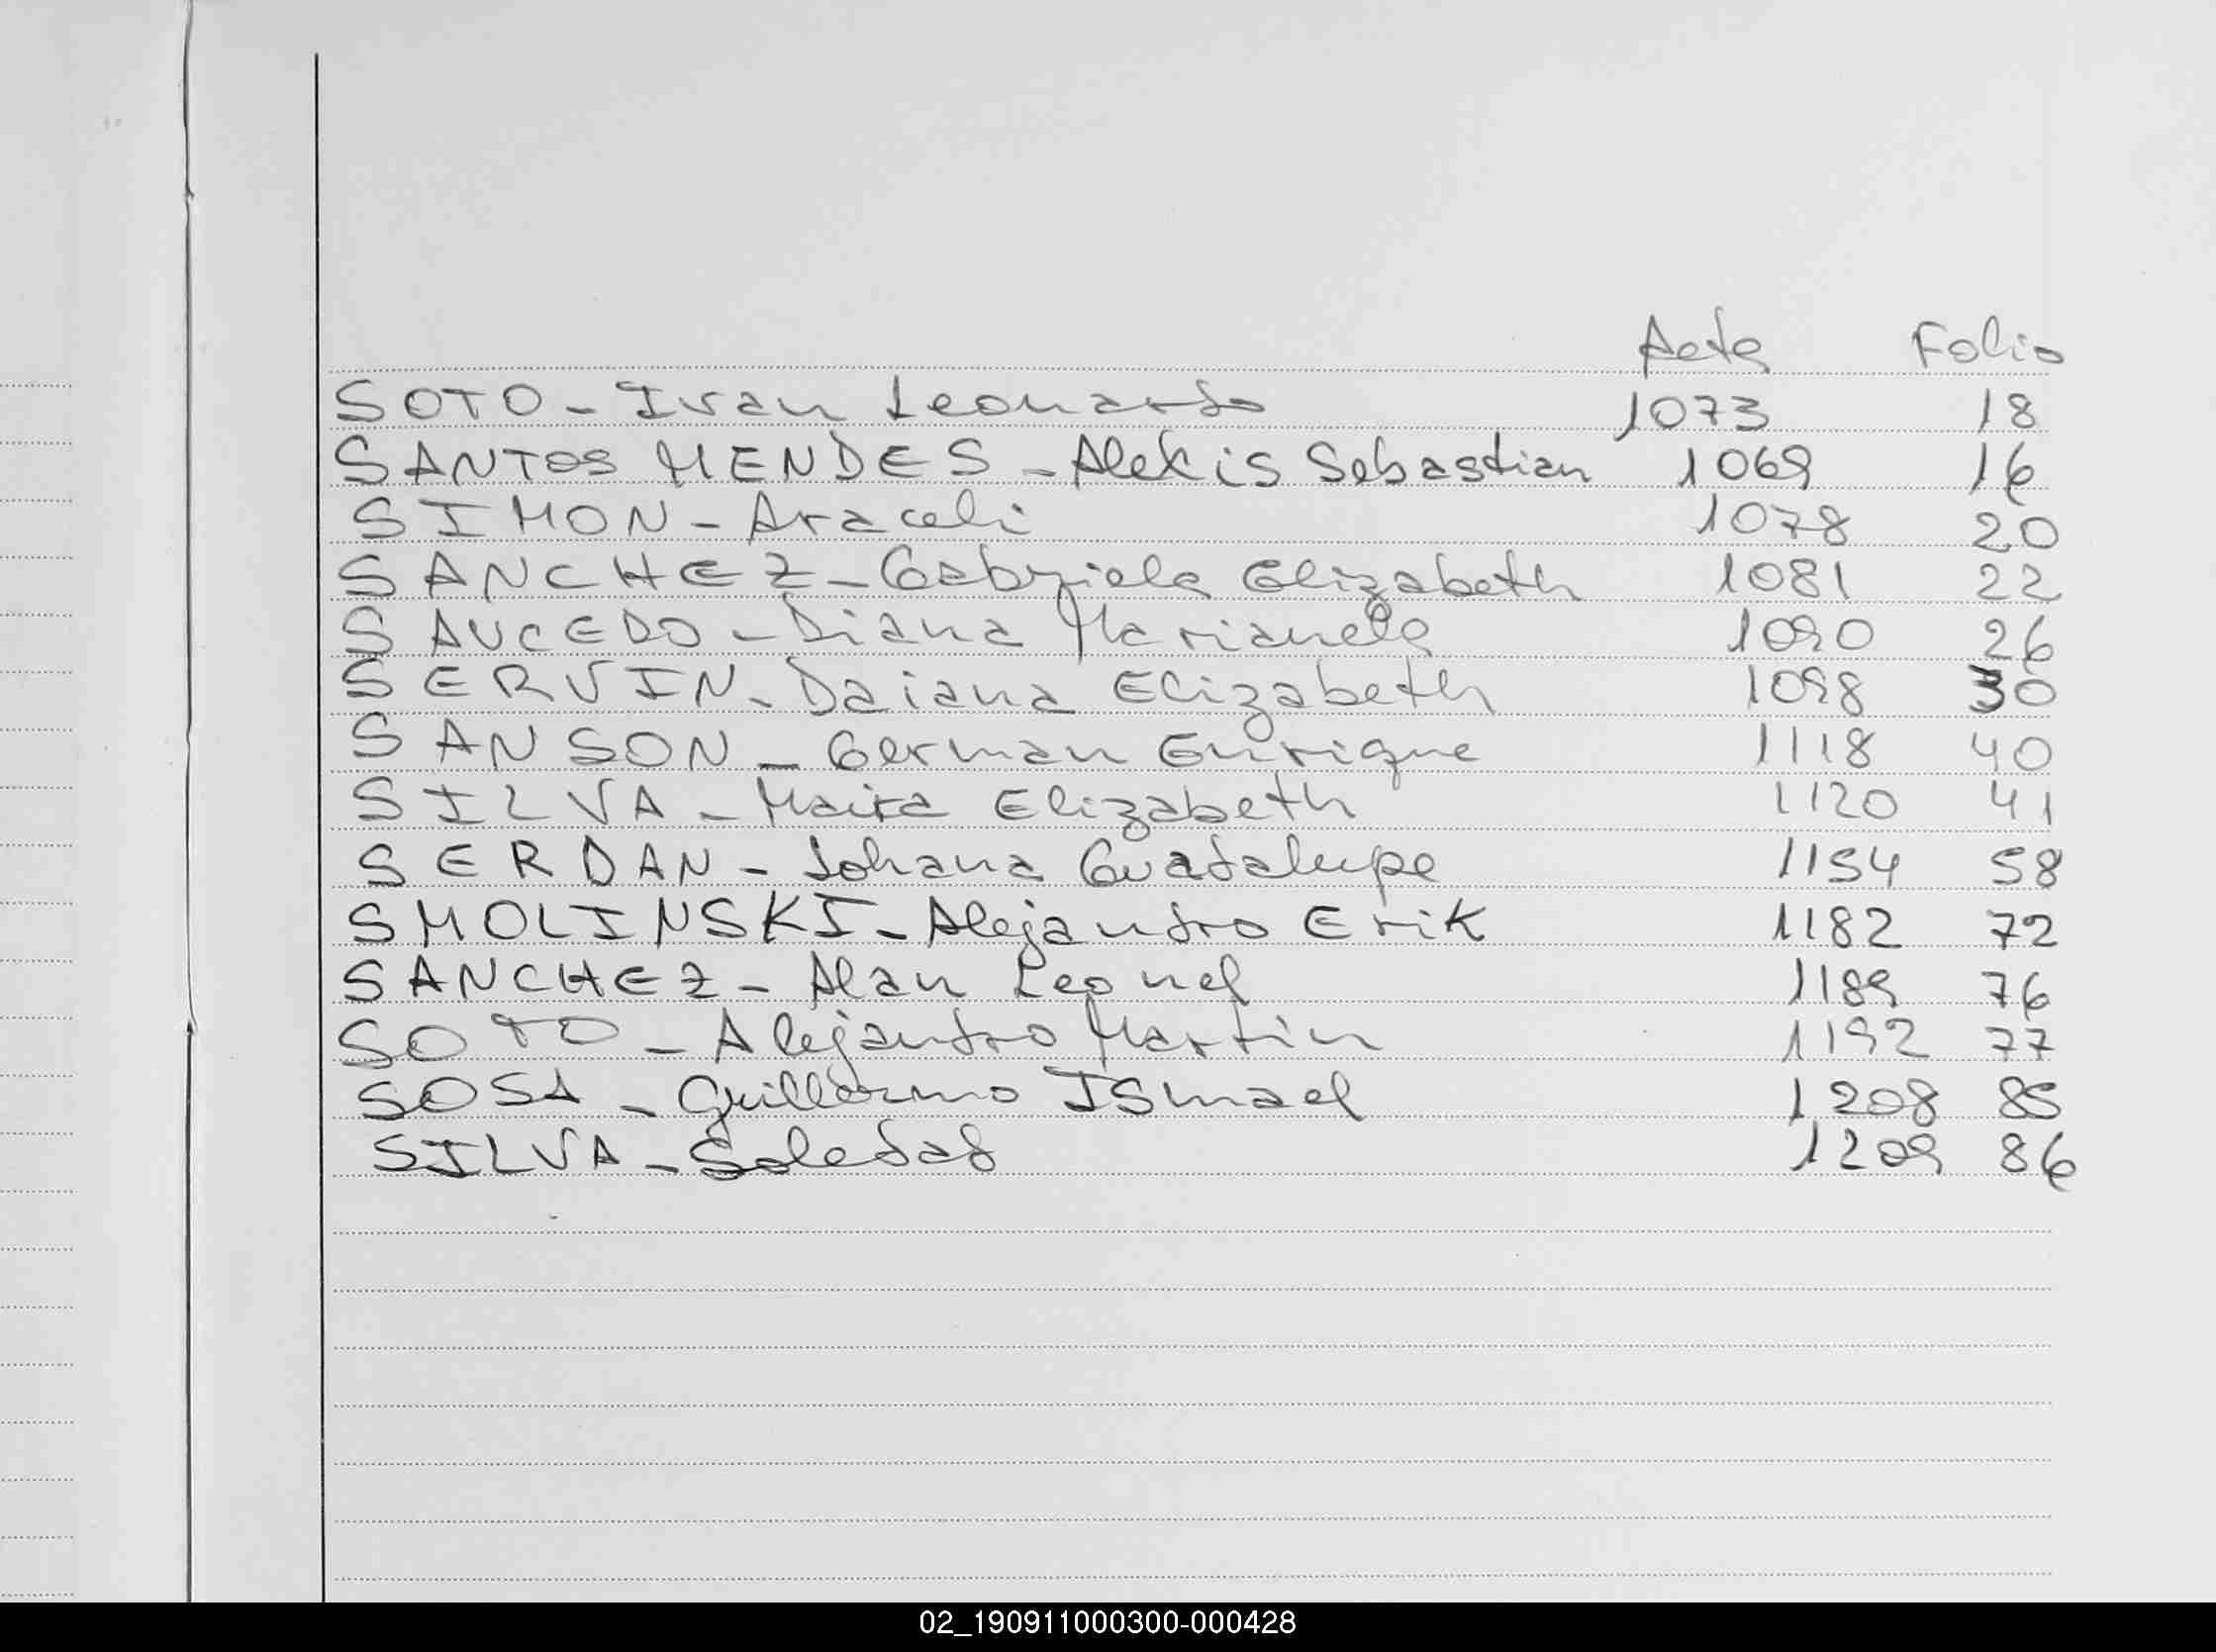 Acta Folio
SOTO - Ivan Leonardo 1073 18
SANTOS MENDES - Alekis Sebastian 1069 16
SIMON - Araceli 1078 20
SANCHEZ - Gabriela Elizabeth 1081 22
SAUCEDO - Diana Marianela 1090 26
SERVIN - Daiana Elizabeth 1098 30
SANSON - German Enrique 1118 40
SILVA - Maira Elizabeth 1120 41
SERDAN - Johana Guadalupe 1154 58
SMOLINSKI - Alejandro Erik 1182 72
SANCHEZ - Alan Leonel 1189 76
SOTO - Alejandro Martin 1192 77
SOSA - Guillermo Ismael 1208 85
SILVA - Soledad 1209 86
02_190911000300-000428